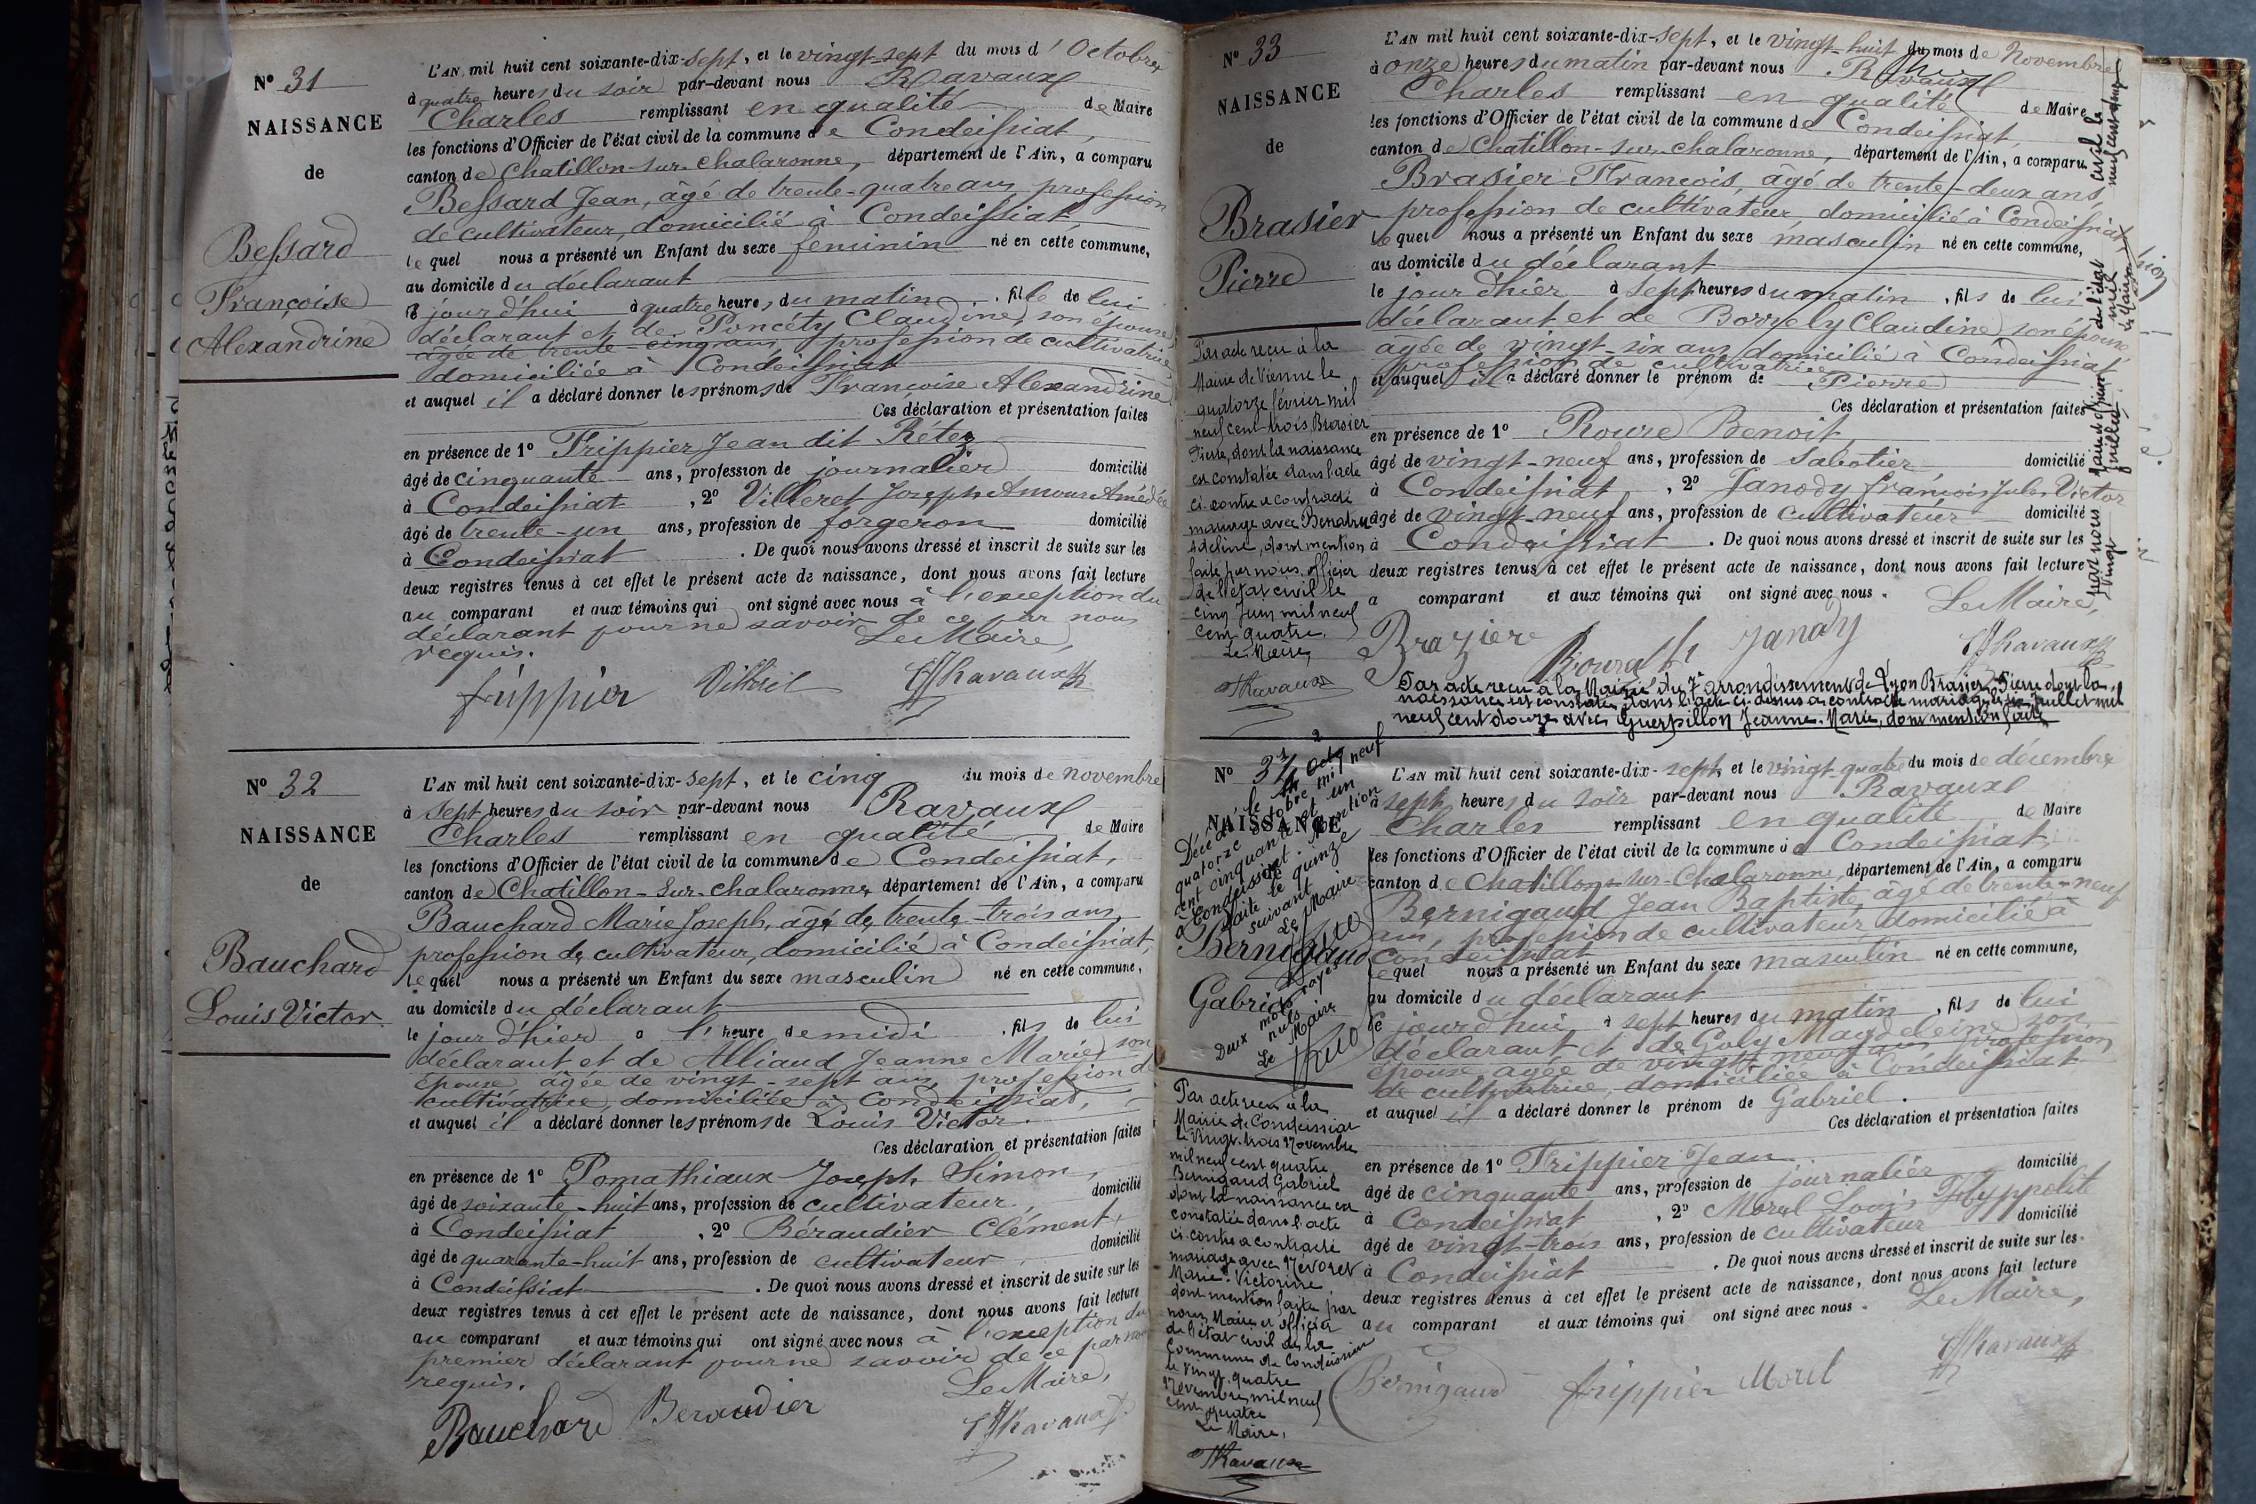 N° 31
NAISSANCE
de
Bessard
Françoise
Alexandrine
L'AN mil huit cent soixante-dix-sept, et le vingt-sept du mois d'Octobre
à quatre heures du soir par-devant nous Ravaux
Charles remplissant en qualité de Maire
les fonctions d'Officier de l'état civil de la commune de Condeissiat,
canton de Chatillon-sur-Chalaronne, département de l'Ain, a comparu
Bessard Jean, âgé de trente-quatre ans, profession
de cultivateur, domicilié à Condeissiat
lequel nous a présenté un Enfant du sexe féminin né en cette commune,
au domicile du déclarant
le jourd'hui à quatre heures du matin, fille de lui
déclarant et de Poncéty Claudine, son épouse
âgée de trente-cinq ans, profession de cultivatrice
domiciliée à Condeissiat
et auquel il a déclaré donner les prénoms de Françoise Alexandrine
Ces déclaration et présentation faites
en présence de 1° Frippier Jean dit Rétez
âgé de cinquante ans, profession de journalier domicilié
à Condeissiat, 2° Villeret Joseph Amour Amédée
âgé de trente-un ans, profession de forgeron domicilié
à Condeissiat. De quoi nous avons dressé et inscrit de suite sur les
deux registres tenus à cet effet le présent acte de naissance, dont nous avons fait lecture
au comparant et aux témoins qui ont signé avec nous à l'exception du
déclarant pour ne savoir de ce par nous
requis. Le Maire,
frippier Villeret Ravaux
N° 32
NAISSANCE
de
Bauchard
Louis Victor
L'AN mil huit cent soixante-dix-sept, et le cinq du mois de novembre
à sept heures du soir par-devant nous Ravaux
Charles remplissant en qualité de Maire
les fonctions d'Officier de l'état civil de la commune de Condeissiat,
canton de Chatillon-sur-Chalaronne, département de l'Ain, a comparu
Bauchard Marie Joseph, âgé de trente-trois ans,
profession de cultivateur, domicilié à Condeissiat,
lequel nous a présenté un Enfant du sexe masculin né en cette commune,
au domicile du déclarant
le jour d'hier à l'heure de midi, fils de lui
déclarant et de Alliaud Jeanne Marie, son
épouse, âgée de vingt-sept ans, profession de
cultivatrice, domiciliée à Condeissiat,
et auquel il a déclaré donner les prénoms de Louis Victor.
Ces déclaration et présentation faites
en présence de 1° Pomathiaux Joseph Simon,
âgé de soixante-huit ans, profession de cultivateur, domicilié
à Condeissiat, 2° Béraudier Clément,
âgé de quarante-huit ans, profession de cultivateur domicilié
à Condeissiat. De quoi nous avons dressé et inscrit de suite sur les
deux registres tenus à cet effet le présent acte de naissance, dont nous avons fait lecture
au comparant et aux témoins qui ont signé avec nous à l'exception du
premier déclarant pour ne savoir de ce par nous
requis. Le Maire,
Bauchard Beraudier Ravaux
N° 33
NAISSANCE
de
Brasier
Pierre
Par acte reçu à la
Mairie de Vienne le
quatorze février mil
neuf cent trois, Brasier
Pierre, dont la naissance
est constatée dans l'acte
ci-contre a contracté
mariage avec
Adeline, dont mention
faite par nous officier
de l'état civil le
cinq Juin mil neuf
cent quatre.
Le Maire,
Ravaux
L'AN mil huit cent soixante-dix-sept, et le vingt-huit du mois de Novembre
à onze heures du matin par-devant nous Ravaux
Charles remplissant en qualité de Maire
les fonctions d'Officier de l'état civil de la commune de Condeissiat,
canton de Chatillon-sur-Chalaronne, département de l'Ain, a comparu
Brasier François, âgé de trente-deux ans,
profession de cultivateur, domicilié à Condeissiat
lequel nous a présenté un Enfant du sexe masculin né en cette commune,
au domicile du déclarant
le jour d'hier à sept heures du matin, fils de lui
déclarant et de Claudine, son épouse
âgée de vingt-six ans, domicilié à Condeissiat
profession de cultivatrice
et auquel il a déclaré donner le prénom de Pierre
Ces déclaration et présentation faites
en présence de 1° Roure Benoit,
âgé de vingt-neuf ans, profession de sabotier, domicilié
à Condeissiat, 2° Janody François Jules Victor
âgé de vingt-neuf ans, profession de cultivateur domicilié
à Condeissiat. De quoi nous avons dressé et inscrit de suite sur les
deux registres tenus à cet effet le présent acte de naissance, dont nous avons fait lecture
a comparant et aux témoins qui ont signé avec nous. Le Maire,
Brazier Janody Ravaux
Par acte reçu à la Mairie du 7e arrondissement de Lyon Brasier Pierre dont la
naissance est constatée dans l'acte ci-dessus a contracté mariage juillet mil
neuf cent douze avec Guerpillon Jeanne-Marie, dont mention faite
par nous officier de l'état civil le
N° 34
NAISSANCE
Bernigaud
Gabriel
Décédé le
quatorze octobre mil neuf
cent cinquante et un
à Condeissiat. Mention
faite le quinze
suivant
Le Maire
Deux mots rayés
nuls
Le Maire
Par acte reçu à la
Mairie de Condeissiat
le vingt-trois Novembre
mil neuf cent quatre
Bernigaud Gabriel
dont la naissance est
constatée dans l'acte
ci-contre a contracté
mariage avec Nevoret
Marie-Victorine
dont mention faite par
nous Maire et officier
de l'état civil de la
Commune de Condeissiat
le vingt-quatre
Novembre mil neuf
cent quatre
Le Maire,
Ravaux
L'AN mil huit cent soixante-dix-sept, et le vingt-quatre du mois de décembre
à sept heures du soir par-devant nous Ravaux
Charles remplissant en qualité de Maire
les fonctions d'Officier de l'état civil de la commune de Condeissiat
canton de Chatillon-sur-Chalaronne, département de l'Ain, a comparu
Bernigaud Jean Baptiste, âgé de trente-neuf
ans, profession de cultivateur domicilié à
Condeissiat
lequel nous a présenté un Enfant du sexe masculin né en cette commune,
au domicile du déclarant
le jourd'hui à sept heures du matin, fils de lui
déclarant et de Goly Magdeleine, son
épouse, âgée de vingt-neuf ans, profession
de cultivatrice, domiciliée à Condeissiat
et auquel il a déclaré donner le prénom de Gabriel.
Ces déclaration et présentation faites
en présence de 1° Frippier Jean domicilié
âgé de cinquante ans, profession de journalier
à Condeissiat, 2° Morel Louis Hyppolite
âgé de vingt-trois ans, profession de cultivateur domicilié
à Condeissiat. De quoi nous avons dressé et inscrit de suite sur les
deux registres tenus à cet effet le présent acte de naissance, dont nous avons fait lecture
au comparant et aux témoins qui ont signé avec nous. Le Maire,
Bernigaud frippier Morel Ravaux